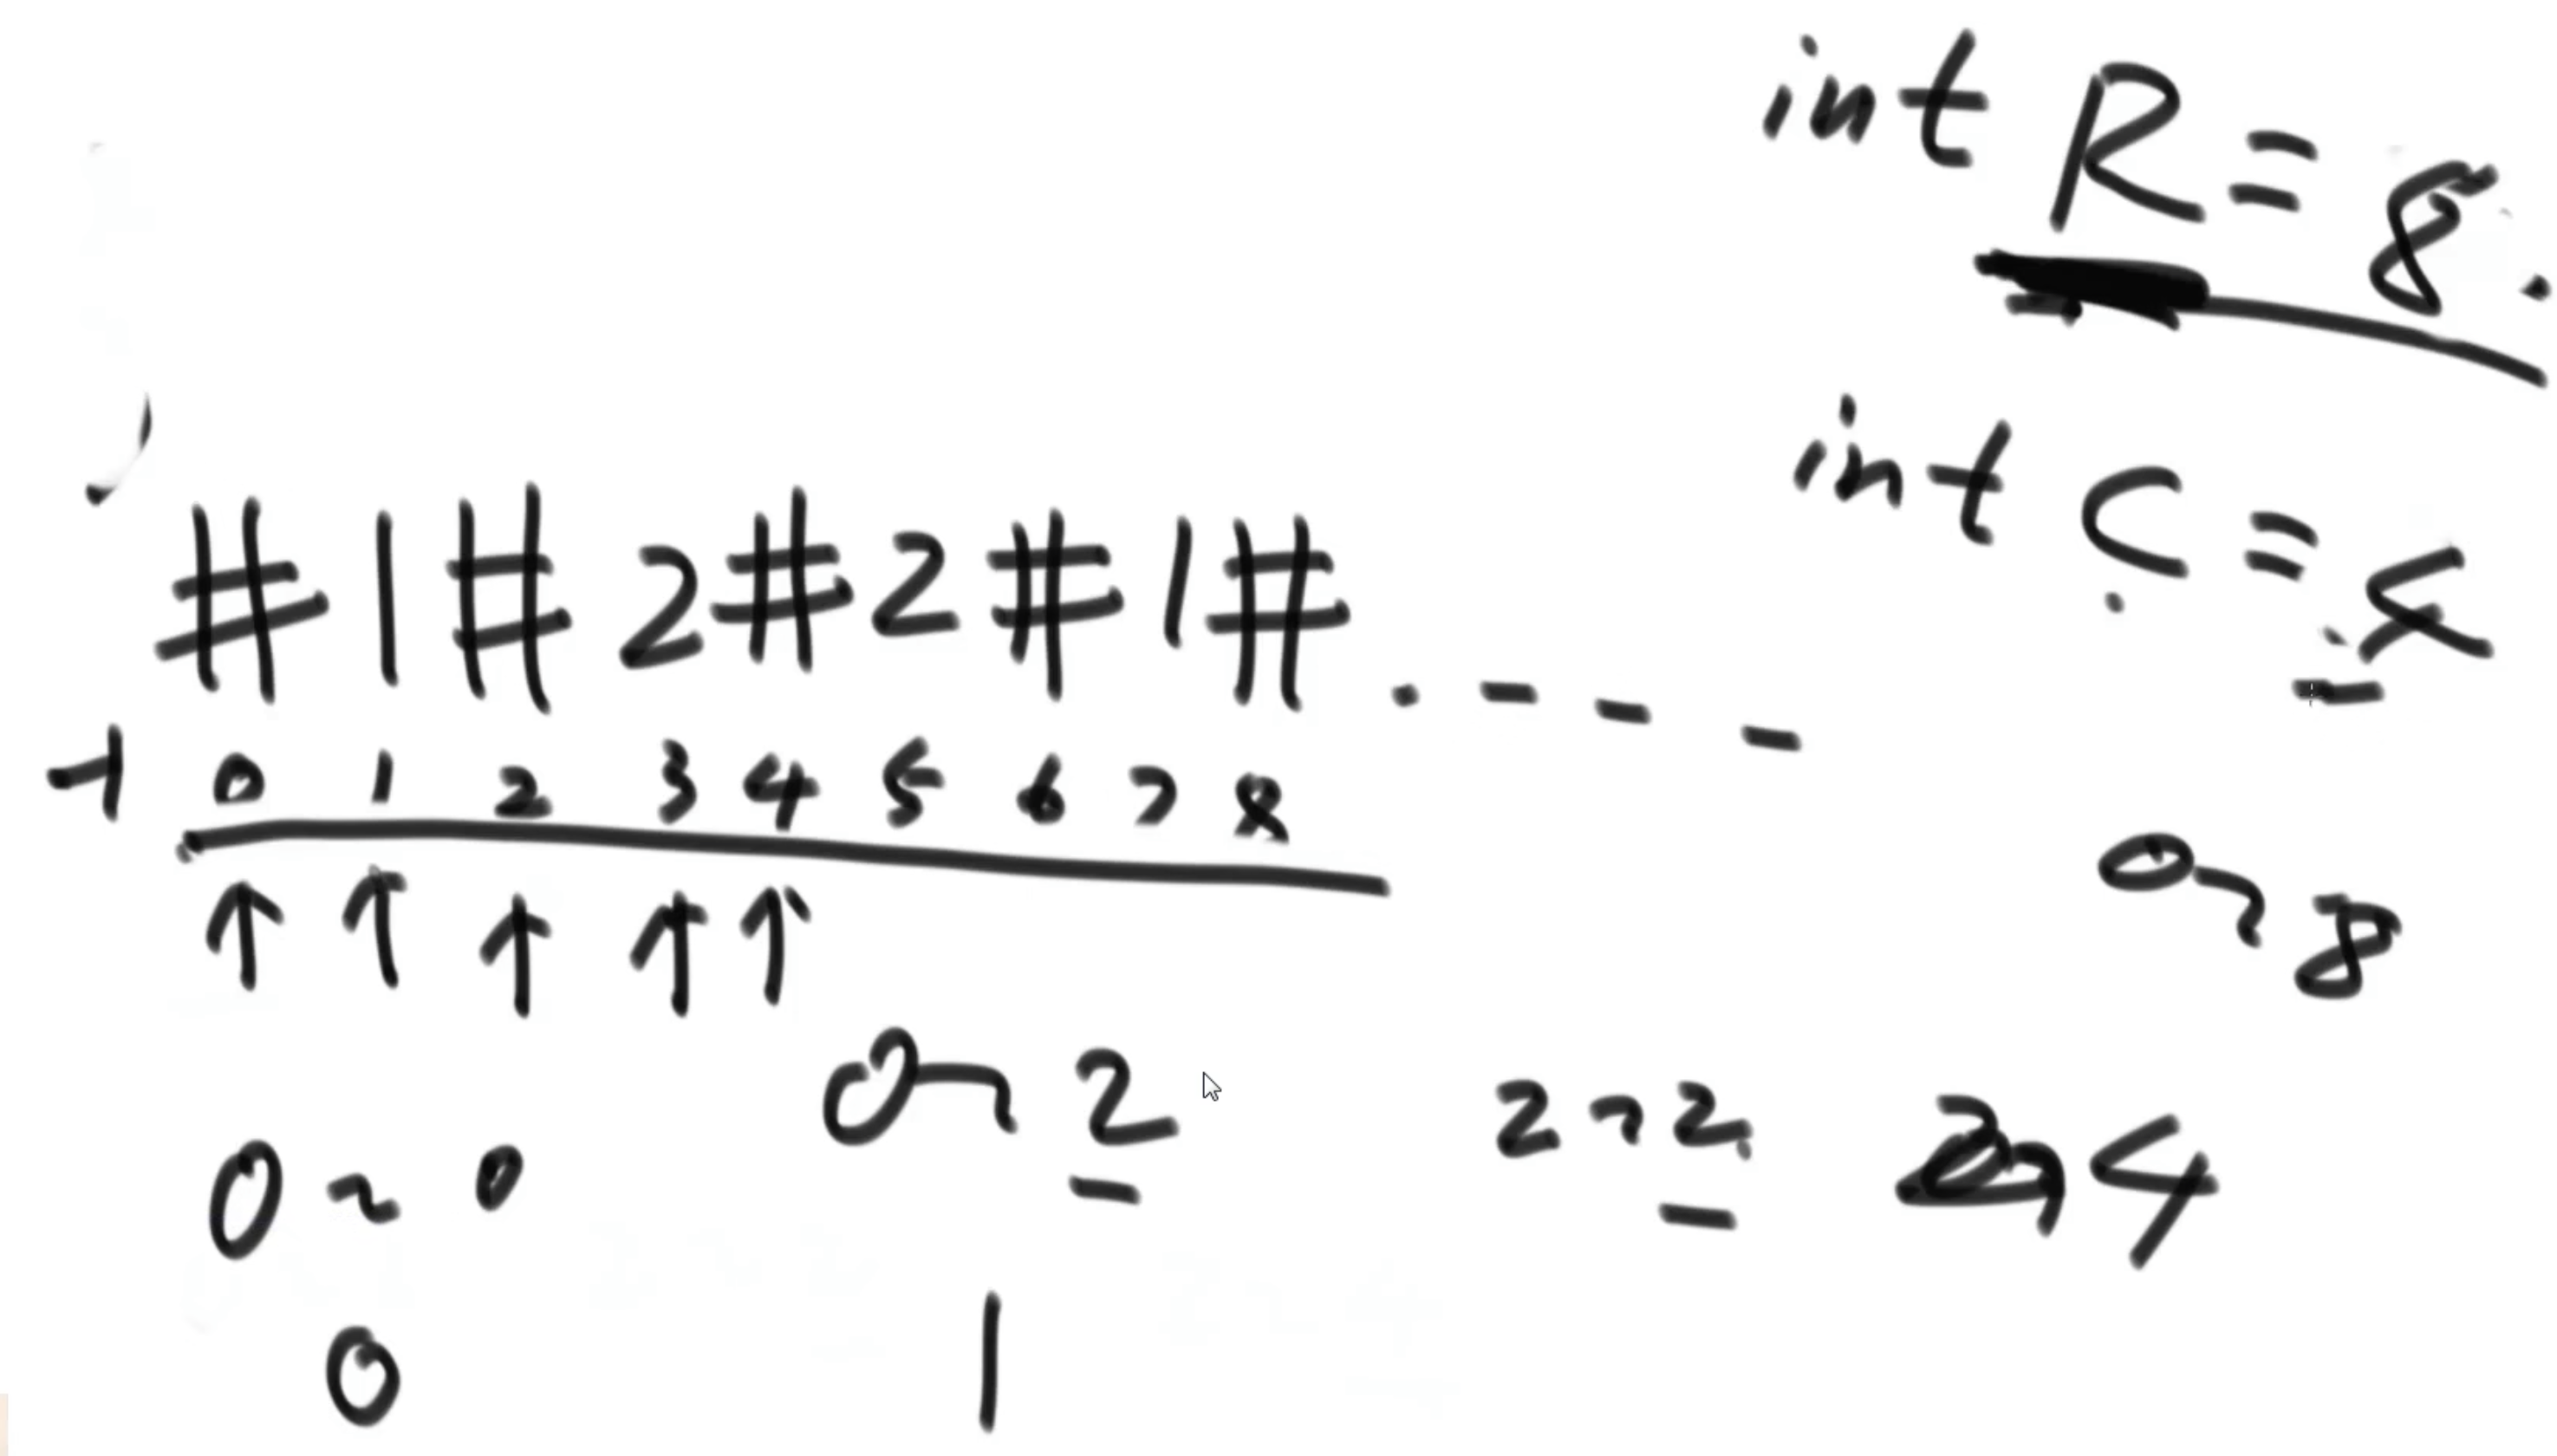 int R = 8.
int C = 4
#1#2#2#1#. - - -
-1 0 1 2 3 4 5 6 7 8
↑ ↑ ↑ ↑ ↑
0~8
0~0 0~2 2~2 2~4
0 1